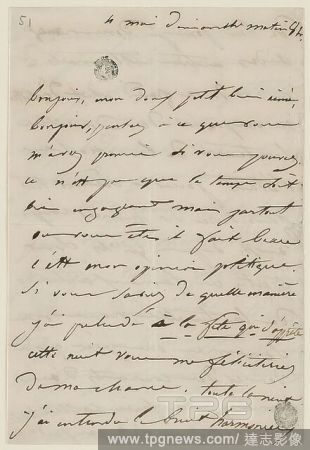 51
4 mai dimanche matin 8h.
bonjour, mon doux petit bien aimé
bonjour, pensez à ce que vous
m'avez promis si vous pouvez
ce n'est pas que le temps soit
bien engageant mais partout
où vous êtes il fait beau
c'est mon opinion politique
Si vous saviez de quelle manière
j'ai préludé à la fête qui s'apprête
cette nuit vous me féliciteriez
de ma chance. toute la nuit
j'ai entendu le bruit harmonieux
TPG
www.tpgnews.com/ 達志影像